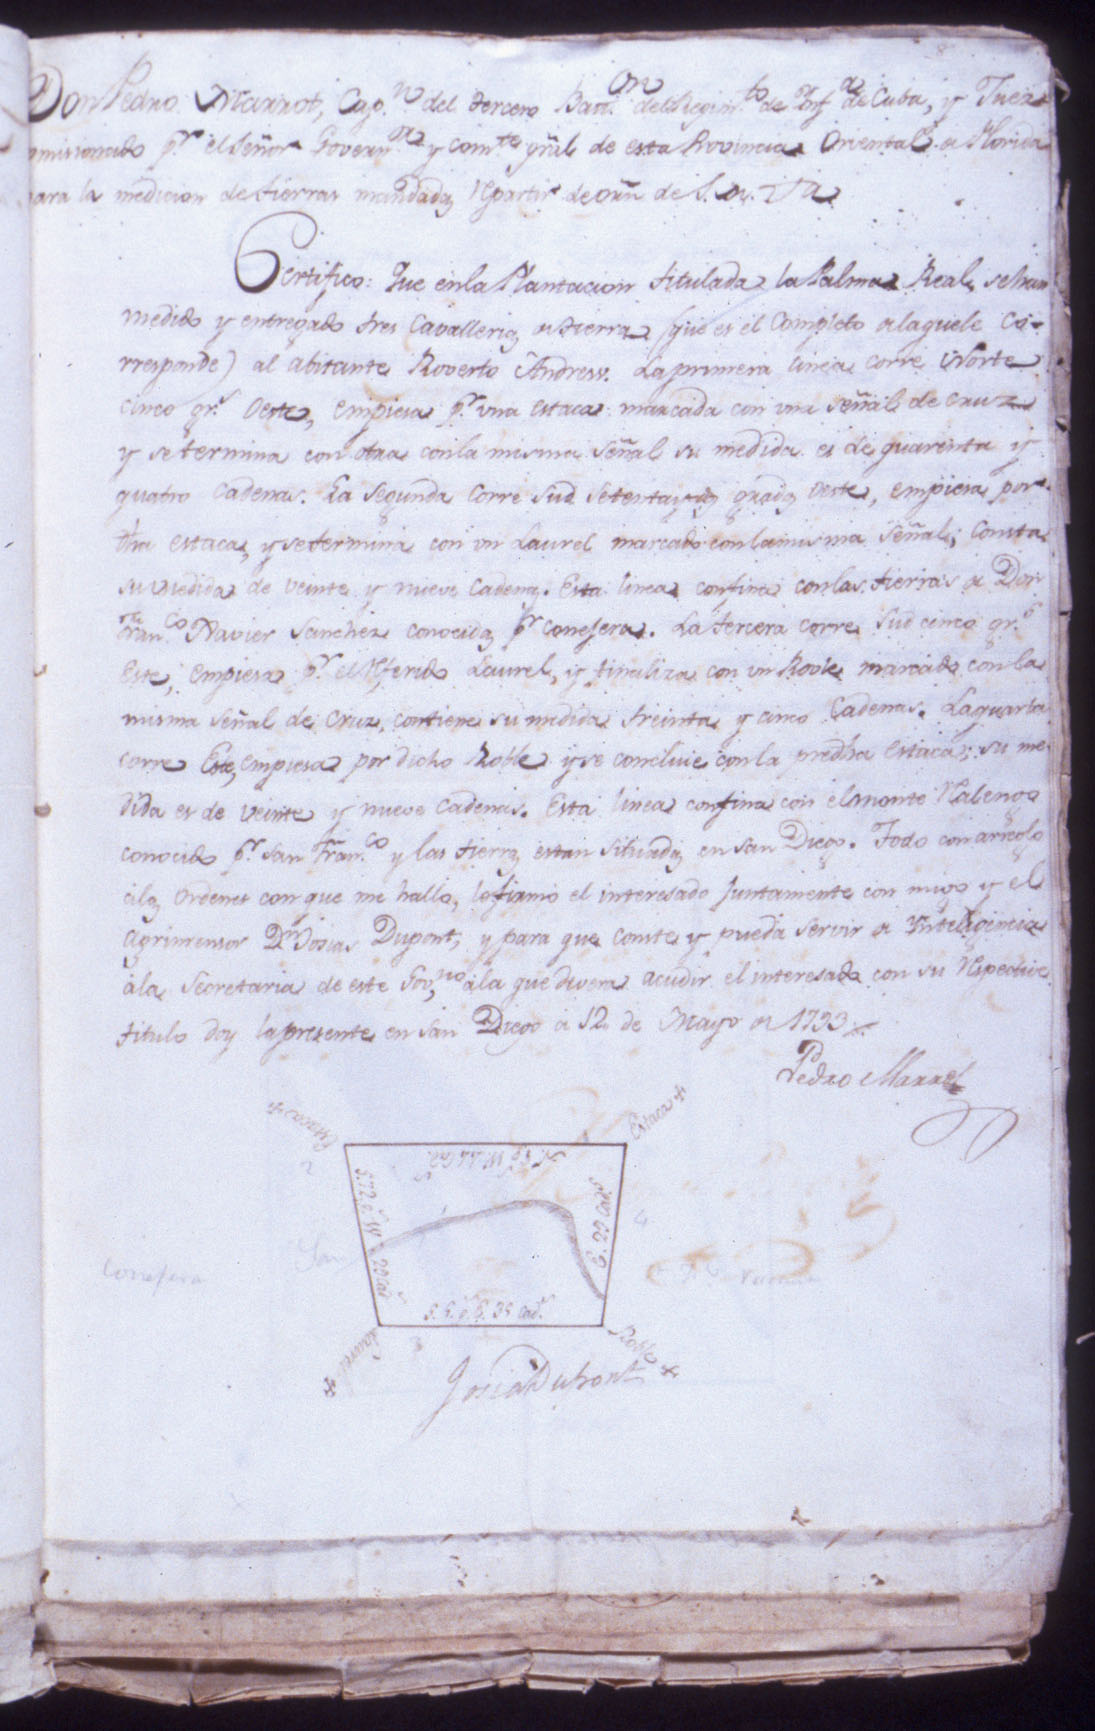 Don Pedro Marrot, Cap.n del tercero Batt.on del Regim.to de Ynf.a de Cuba, y Juez
omisionado p.r el Señor Govern.or y Com.te gral de esta Provincia Oriental de Florida
para la medicion de tierras mandadas repartir de orñ de S. M. Va
Certifico: Que en la Plantacion titulada la Palma Real, se han
medido y entregado tres Cavallerias de tierra (que es el Completo de la que le Co-
rresponde) al abitante Roverto Andress. La primera linea corre Norte
cinco gr.s Oeste, empiesa p.r una estaca marcada con una señal de cruz
y se termina con otra con la misma señal su medida es de quarenta y
quatro Cadenas. La segunda Corre Sud setenta y dos grados Oeste, empiesa por
dha estaca, y se termina con un Laurel marcado con la misma señal; Consta
su medida de veinte y nueve Cadenas. Esta linea confina con las tierras de Don
Fran.co Xavier Sanchez conocidas p.r conejera. La tercera corre Sud cinco gr.s
Este, empiesa p.r el referido Laurel, y finaliza con un Roble marcado con la
misma señal de Cruz, contiene su medida treinta y cinco Cadenas. La quarta
corre Este, empiesa por dicho Roble y se concluie con la predha estaca; su me-
dida es de veinte y nueve cadenas. Esta linea confina con el monte Realengo
conocido p.r San Fran.co y las tierras estan situadas en San Diego. Todo con arreglo
a las ordenes con que me hallo, lo firmó el interesado juntamente con migo y el
agrimensor Dn Josias Dupont, y para que conste y pueda servir de Inteligencia
à la Secretaria de este Gov.no à la que devera acudir el interesado con su respective
titulo doy la presente en San Diego à 12 de Mayo de 1793.
Pedro Marrot
Estaca
Estaca
2
N. 5 g.s W. 44 Ca.s
S. 72. g.s W 29 Cad.s
E. 29 Cad.s
4
Conejera
San
S. 5. g. E. 35 Cad.s
3
Laurel
Roble
Josia Dupont